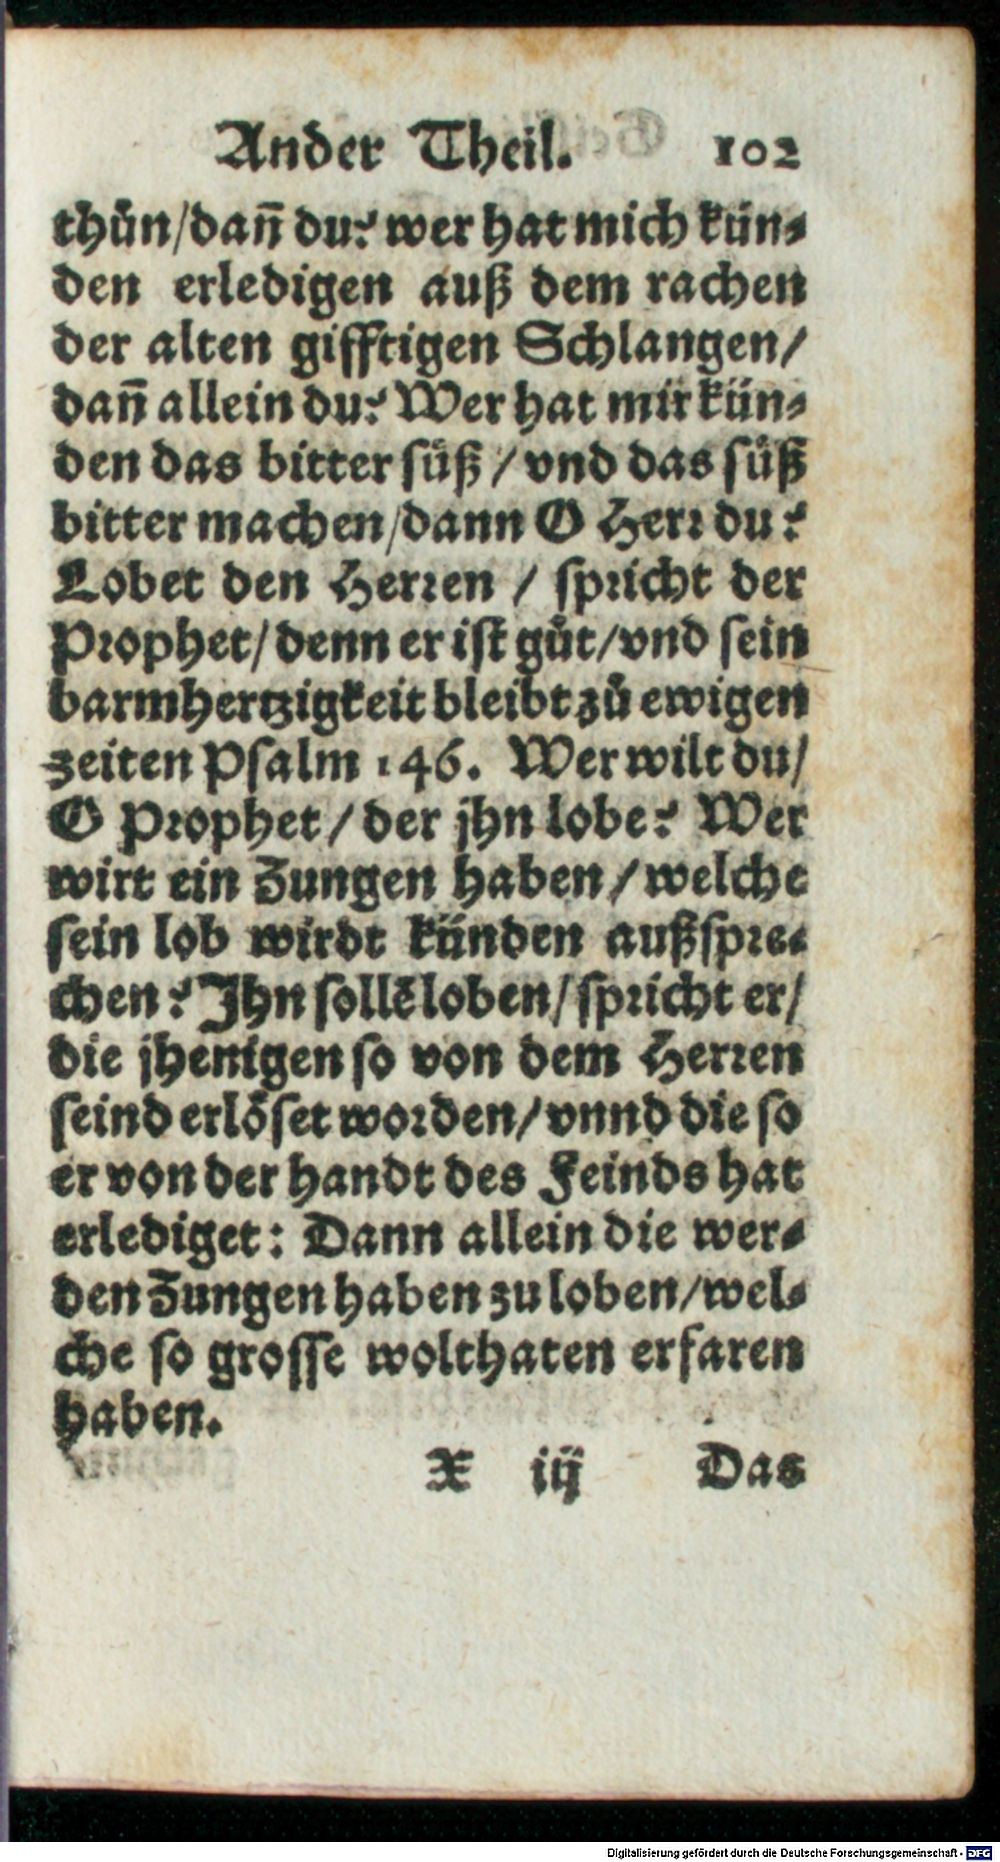 Ander Theil. 102
thůn/dañ du? wer hat mich kün⸗
den erledigen auß dem rachen
der alten gifftigen Schlangen/
dañ allein du? Wer hat mir kün⸗
den das bitter süß / vnd das süß
bitter machen/dann O Herr du?
Lobet den Herren / spricht der
Prophet/denn er ist gůt/vnd sein
barmhertzigkeit bleibt zů ewigen
zeiten Psalm 146. Wer wilt du/
O Prophet/der jhn lobe? Wer
wirt ein Zungen haben/welche
sein lob wirdt künden außspre⸗
chen? Ihn sollē loben/spricht er/
die jhenigen so von dem Herren
seind erlöset worden/vnnd die so
er von der handt des Feinds hat
erlediget: Dann allein die wer⸗
den Zungen haben zu loben/wel⸗
che so grosse wolthaten erfaren
haben.
X iij Das
Digitalisierung gefördert durch die Deutsche Forschungsgemeinschaft - DFG